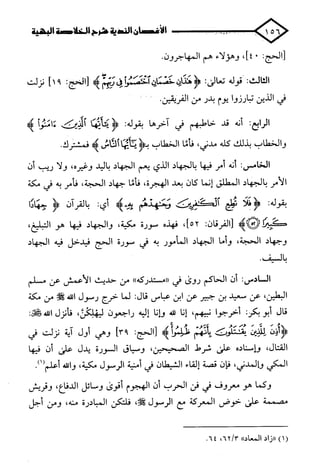 ١٥٦ الأغصان الندية شرح الخلاصة البهية
[الحج: ٤٠]، وهؤلاء هم المهاجرون.
الثالث: قوله تعالى: ﴿هَذَانِ خَصْمَانِ اخْتَصَمُوا فِي رَبِّهِمْ﴾ [الحج: ١٩] نزلت
في الذين تبارزوا يوم بدر من الفريقين.
الرابع: أنه قد خاطبهم في آخرها بقوله: ﴿يَتَأَيُّهَا الَّذِينَ ءَامَنُوا﴾
والخطاب بذلك كله مدني، فأما الخطاب بـ﴿يَتَأَيُّهَا النَّاسُ﴾ فمشترك.
الخامس: أنه أمر فيها بالجهاد الذي يعم الجهاد باليد وغيره، ولا ريب أن
الأمر بالجهاد المطلق إنما كان بعد الهجرة، فأما جهاد الحجة، فأمر به في مكة
بقوله: ﴿فَلَا تُطِعِ الْكَفِرِينَ وَجَهِدْهُم بِهِ﴾ أي: بالقرآن ﴿جِهَادًا
كَبِيرًا﴾ [الفرقان: ٥٢]، فهذه سورة مكية، والجهاد فيها هو التبليغ،
وجهاد الحجة، وأما الجهاد المأمور به في سورة الحج فيدخل فيه الجهاد
بالسيف.
السادس: أن الحاكم روى في «مستدركه» من حديث الأعمش عن مسلم
البطين، عن سعيد بن جبير عن ابن عباس قال: لما خرج رسول الله ﷺ من مكة
قال أبو بكر: أخرجوا نبيهم، إنا لله وإنا إليه راجعون ليهلكن، فأنزل الله ﷻ:
﴿أُذِنَ لِلَّذِينَ يُقَتَلُونَ بِأَنَّهُمْ ظُلِمُوا﴾ [الحج: ٣٩] وهي أول آية نزلت في
القتال، وإسناده على شرط الصحيحين، وسياق السورة يدل على أن فيها
المكي والمدني، فإن قصة إلقاء الشيطان في أمنية الرسول مكية، والله أعلم(١).
وكما هو معروف في فن الحرب أن الهجوم أقوى وسائل الدفاع، وقريش
مصممة على خوض المعركة مع الرسول ﷺ، فلتكن المبادرة منه، ومن أجل
(١) «زاد المعاد» ٣/ ٦٢، ٦٤.